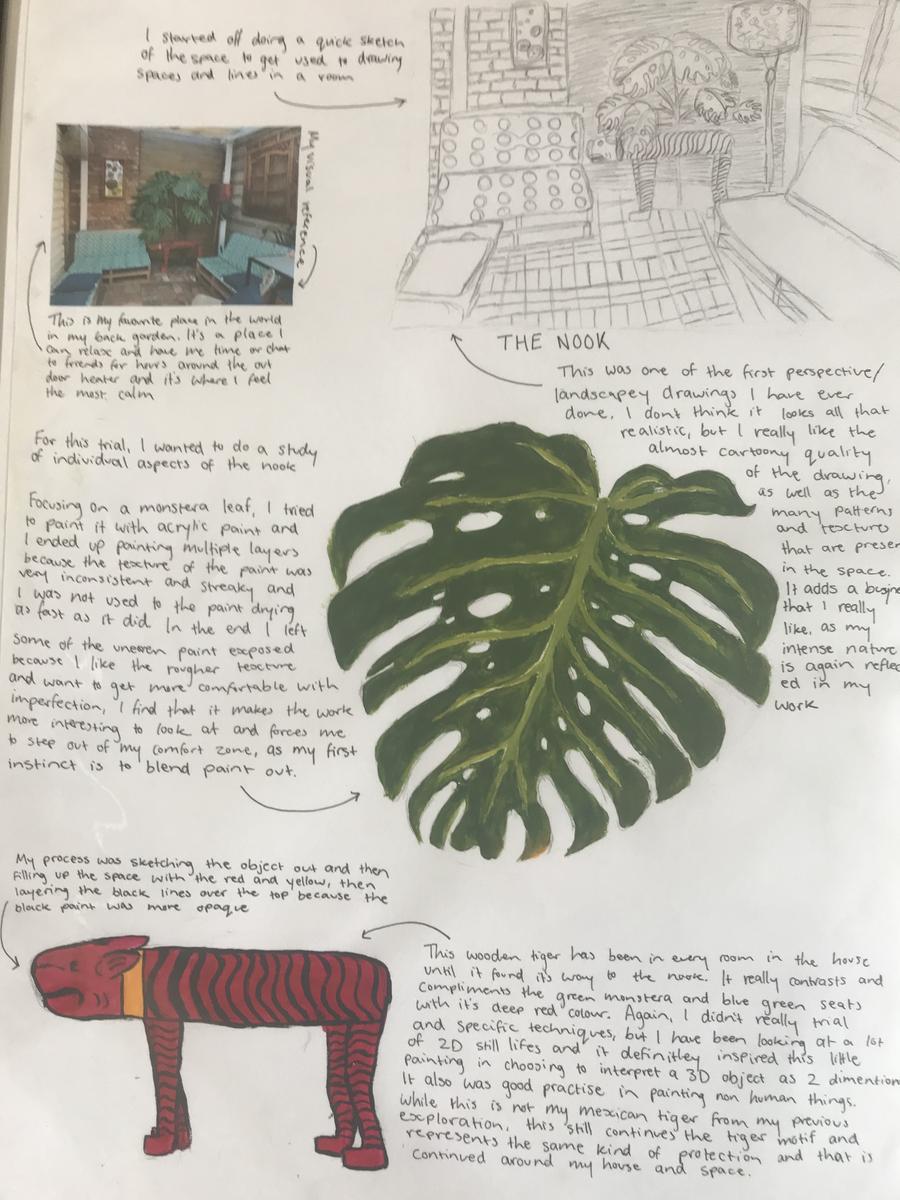 I started off doing a quick sketch
of the space to get used to drawing
spaces and lines in a room
My visual reference
This is my favourite place in the world
in my back garden. It's a place I
can relax and have me time or chat
to friends for hours around the out
door heater and it's where I feel
the most calm
THE NOOK
This was one of the first perspective/
landscapey drawings I have ever
done, I dont think it looks all that
realistic, but I really like the
almost cartoony quality
of the drawing,
as well as the
many patterns
and textures
that are presen
in the space.
It adds a busyne
that I really
like, as my
intense nature
is again reflec
ed in my
work
For this trial, I wanted to do a study
of individual aspects of the nook
Focusing on a monstera leaf, I tried
to paint it with acrylic paint and
I ended up painting multiple layers
because the texture of the paint was
very inconsistent and streaky and
I was not used to the paint drying
as fast as it did. In the end I left
some of the uneven paint exposed
because I like the rougher texture
and want to get more comfortable with
imperfection, I find that it makes the work
more interesting to look at and forces me
to step out of my comfort zone, as my first
instinct is to blend paint out.
My process was sketching the object out and then
filling up the space with the red and yellow, then
layering the black lines over the top because the
black paint was more opaque
This wooden tiger has been in every room in the house
until it found it's way to the nook. It really contrasts and
compliments the green monstera and blue green seats
with it's deep red colour. Again, I didn't really trial
and specific techniques, but I have been looking at a lot
of 2D still lifes and it definitley inspired this little
painting in choosing to interpret a 3D object as 2 dimention
It also was good practise in painting non human things.
While this is not my mexican tiger from my previous
exploration, this still continues the tiger motif and
represents the same kind of protection and that is
continued around my house and space.